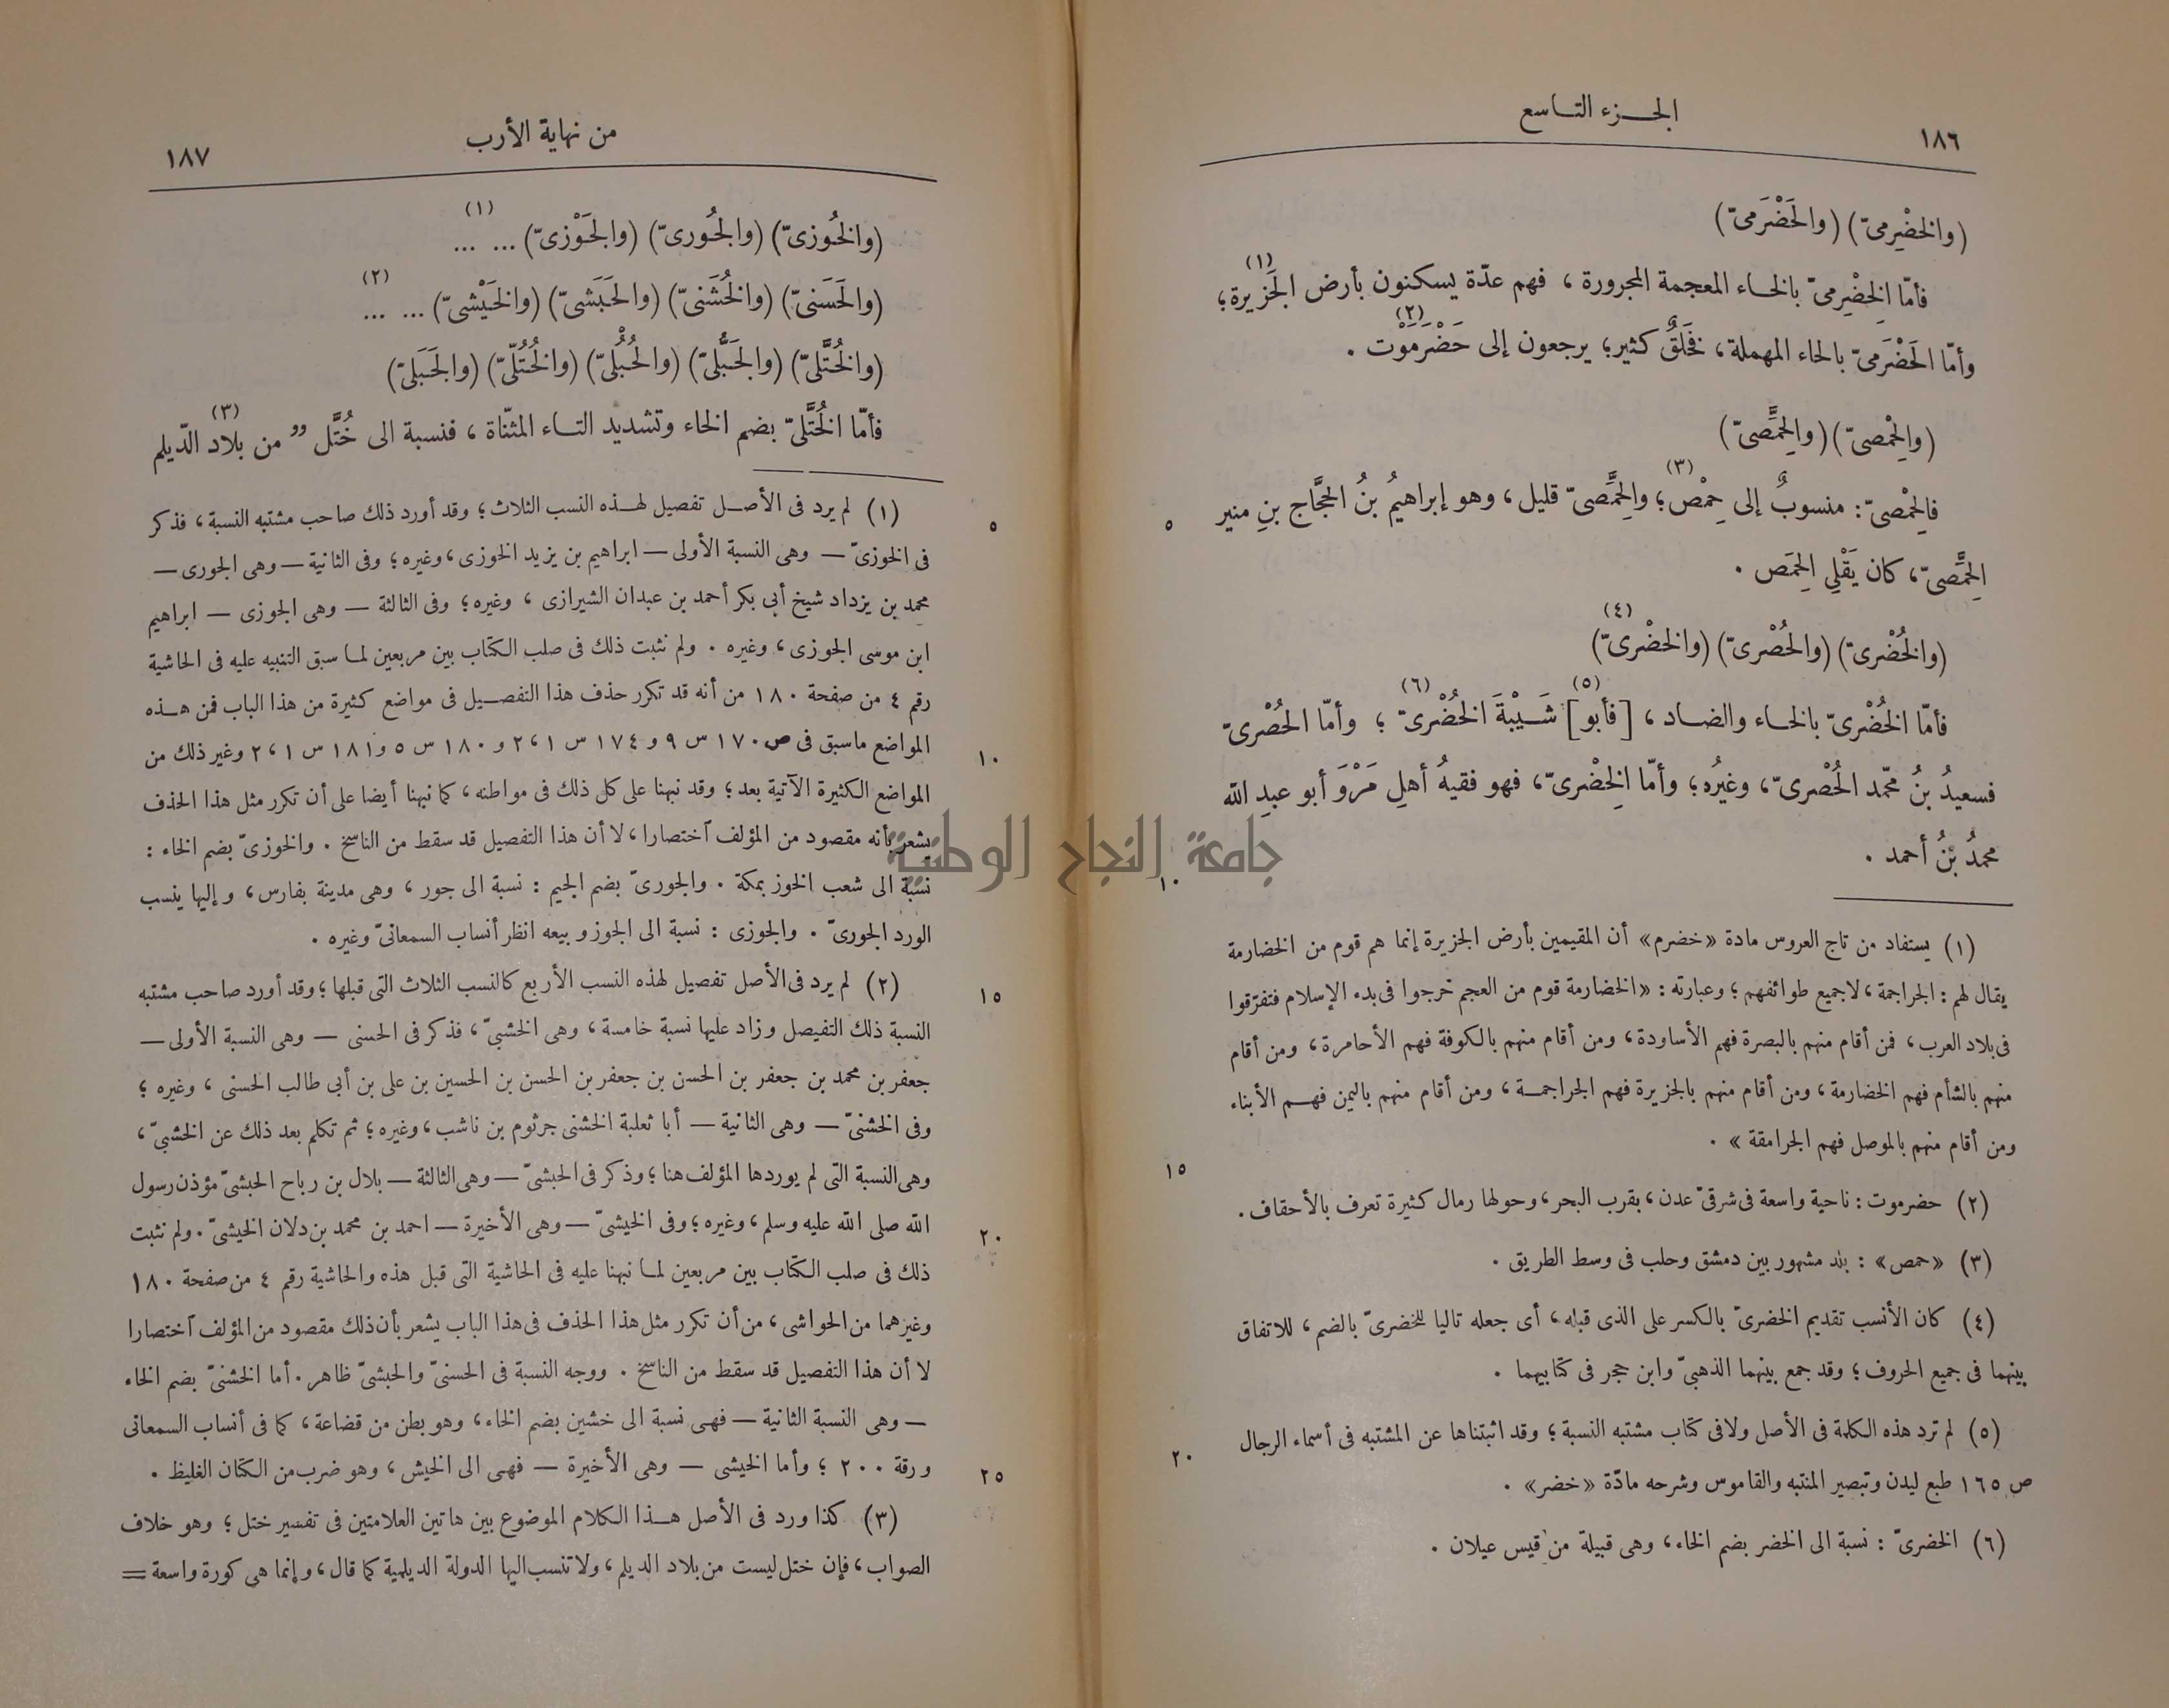 الجزء التاسع
١٨٦
(والخِضْرِمىّ) (والحَضْرَمىّ)
فأمّا الخِضْرِمىّ بالخاء المعجمة المجرورة ، فهم عدّة يسكنون بأرض الجَزيرة(١)؛
وأمّا الحَضْرَمىّ بالحاء المهملة، فخَلقٌ كثير؛ يرجعون إلى حَضْرَمَوْت(٢) .
(والحِمْصىّ) (والحِمَّصىّ)
فالحِمْصىّ: منسوبٌ إلى حِمْص(٣)؛ والحِمَّصىّ قليل، وهو إبراهيمُ بنُ الحجَّاج بنِ منير
الحِمَّصىّ، كان يَقْلِي الحِمَص .
(والخُضْرىّ) (والحُصْرىّ) (والخضْرىّ)(٤)
فأمّا الخُضْرىّ بالخاء والضاد، [فأبو](٥) شَيْبَةَ الخُضْرىّ(٦) ؛ وأمّا الحُصْرىّ
فسعيدُ بنُ محمّد الحُصْرىّ، وغيرُه؛ وأمّا الخِضْرىّ، فهو فقيهُ أهلِ مَرْوَ أبو عبدِ الله
محمدُ بنُ أحمد .
(١) يستفاد من تاج العروس مادة «خضرم» أن المقيمين بأرض الجزيرة إنما هم قوم من الخضارمة
يقال لهم : الجراجمة، لا جميع طوائفهم؛ وعبارته : «الخضارمة قوم من العجم خرجوا فى بدء الإسلام فتفرّقوا
فى بلاد العرب، فمن أقام منهم بالبصرة فهم الأساودة، ومن أقام منهم بالكوفة فهم الأحامرة، ومن أقام
منهم بالشأم فهم الخضارمة، ومن أقام منهم بالجزيرة فهم الجراجمة، ومن أقام منهم باليمن فهم الأبناء
ومن أقام منهم بالموصل فهم الجرامقة» .
(٢) حضرموت : ناحية واسعة فى شرقىّ عدن، بقرب البحر، وحولها رمال كثيرة تعرف بالأحقاف.
(٣) «حمص» : بلد مشهور بين دمشق وحلب فى وسط الطريق .
(٤) كان الأنسب تقديم الخضرىّ بالكسر على الذى قبله، أى جعله تاليا للخضرىّ بالضم، للاتفاق
بينهما فى جميع الحروف؛ وقد جمع بينهما الذهبىّ وابن حجر فى كتابيهما .
(٥) لم ترد هذه الكلمة فى الأصل ولا فى كتاب مشتبه النسبة؛ وقد اثبتناها عن المشتبه فى أسماء الرجال
ص ١٦٥ طبع ليدن وتبصير المنتبه والقاموس وشرحه مادّة «خضر» .
(٦) الخضرىّ : نسبة الى الخضر بضم الخاء، وهى قبيلة من قيس عيلان .
٥
١٠
١٥
٢٠
من نهاية الأرب
١٨٧
(والخُوزىّ) (والجُورىّ) (والجَوْزىّ)(١) ... ...
(والحَسَنىّ) (والخُشَنىّ) (والحَبَشىّ) (والخَيْشىّ)(٢) ... ...
(والخُتَّلىّ) (والجَبُّلىّ) (والحُبُلىّ) (والخُتُلّىّ) (والجَبَلىّ)
فأمّا الخُتَّلىّ بضم الخاء وتشديد التاء المثنّاة، فنسبة الى خُتَّل ” من بلاد(٣) الدّيلم
(١) لم يرد فى الأصل تفصيل لهذه النسب الثلاث؛ وقد أورد ذلك صاحب مشتبه النسبة، فذكر
فى الخوزىّ — وهى النسبة الأولى — ابراهيم بن يزيد الخوزى، وغيره؛ وفى الثانية — وهى الجورى —
محمد بن يزداد شيخ أبى بكر أحمد بن عبدان الشيرازى ، وغيره؛ وفى الثالثة — وهى الجوزى — ابراهيم
ابن موسى الجوزى، وغيره . ولم نثبت ذلك فى صلب الكتاب بين مربعين لما سبق التنبيه عليه فى الحاشية
رقم ٤ من صفحة ١٨٠ من أنه قد تكرر حذف هذا التفصيل فى مواضع كثيرة من هذا الباب فمن هذه
المواضع ما سبق فى ص ١٧٠ س ٩ و ١٧٤ س ١، ٢ و ١٨٠ س ٥ و ١٨١ س ١، ٢ وغير ذلك من
المواضع الكثيرة الآتية بعد؛ وقد نبهنا على كل ذلك فى مواطنه، كما نبهنا أيضا على أن تكرر مثل هذا الحذف
يشعر بأنه مقصود من المؤلف اختصارا، لا أن هذا التفصيل قد سقط من الناسخ . والخوزىّ بضم الخاء :
نسبة الى شعب الخوز بمكة . والجورىّ بضم الجيم : نسبة الى جور ، وهى مدينة بفارس، وإليها ينسب
الورد الجورىّ . والجوزى : نسبة الى الجوز وبيعه انظر أنساب السمعانىّ وغيره .
(٢) لم يرد فى الأصل تفصيل لهذه النسب الأربع كالنسب الثلاث التى قبلها؛ وقد أورد صاحب مشتبه
النسبة ذلك التفيصل وزاد عليها نسبة خامسة، وهى الخشبىّ، فذكر فى الحسنى — وهى النسبة الأولى —
جعفر بن محمد بن جعفر بن الحسن بن جعفر بن الحسن بن الحسين بن على بن أبى طالب الحسنى ، وغيره ؛
وفى الخشنىّ — وهى الثانية — أبا ثعلبة الخشنى جرثوم بن ناشب، وغيره؛ ثم تكلم بعد ذلك عن الخشبىّ،
وهى النسبة التى لم يوردها المؤلف هنا؛ وذكر فى الحبشىّ — وهى الثالثة — بلال بن رباح الحبشىّ مؤذن رسول
الله صلى الله عليه وسلم، وغيره؛ وفى الخيشىّ — وهى الأخيرة — احمد بن محمد بن دلان الخيشىّ . ولم نثبت
ذلك فى صلب الكتاب بين مربعين لما نبهنا عليه فى الحاشية التى قبل هذه والحاشية رقم ٤ من صفحة ١٨٠
وغيرهما من الحواشى، من أن تكرر مثل هذا الحذف فى هذا الباب يشعر بأن ذلك مقصود من المؤلف اختصارا
لا أن هذا التفصيل قد سقط من الناسخ . ووجه النسبة فى الحسنىّ والحبشىّ ظاهر . أما الخشنىّ بضم الخاء
— وهى النسبة الثانية — فهى نسبة الى خشين بضم الخاء، وهو بطن من قضاعة، كما فى أنساب السمعانى
ورقة ٢٠٠ ؛ وأما الخيشى — وهى الأخيرة — فهى الى الخيش، وهو ضرب من الكتان الغليظ .
(٣) كذا ورد فى الأصل هذا الكلام الموضوع بين هاتين العلامتين فى تفسير ختل؛ وهو خلاف
الصواب، فإن ختل ليست من بلاد الديلم، ولا تنسب اليها الدولة الديلمية كما قال، وإنما هى كورة واسعة =
٥
١٠
١٥
٢٠
٢٥
جامعة النجاح الوطنية